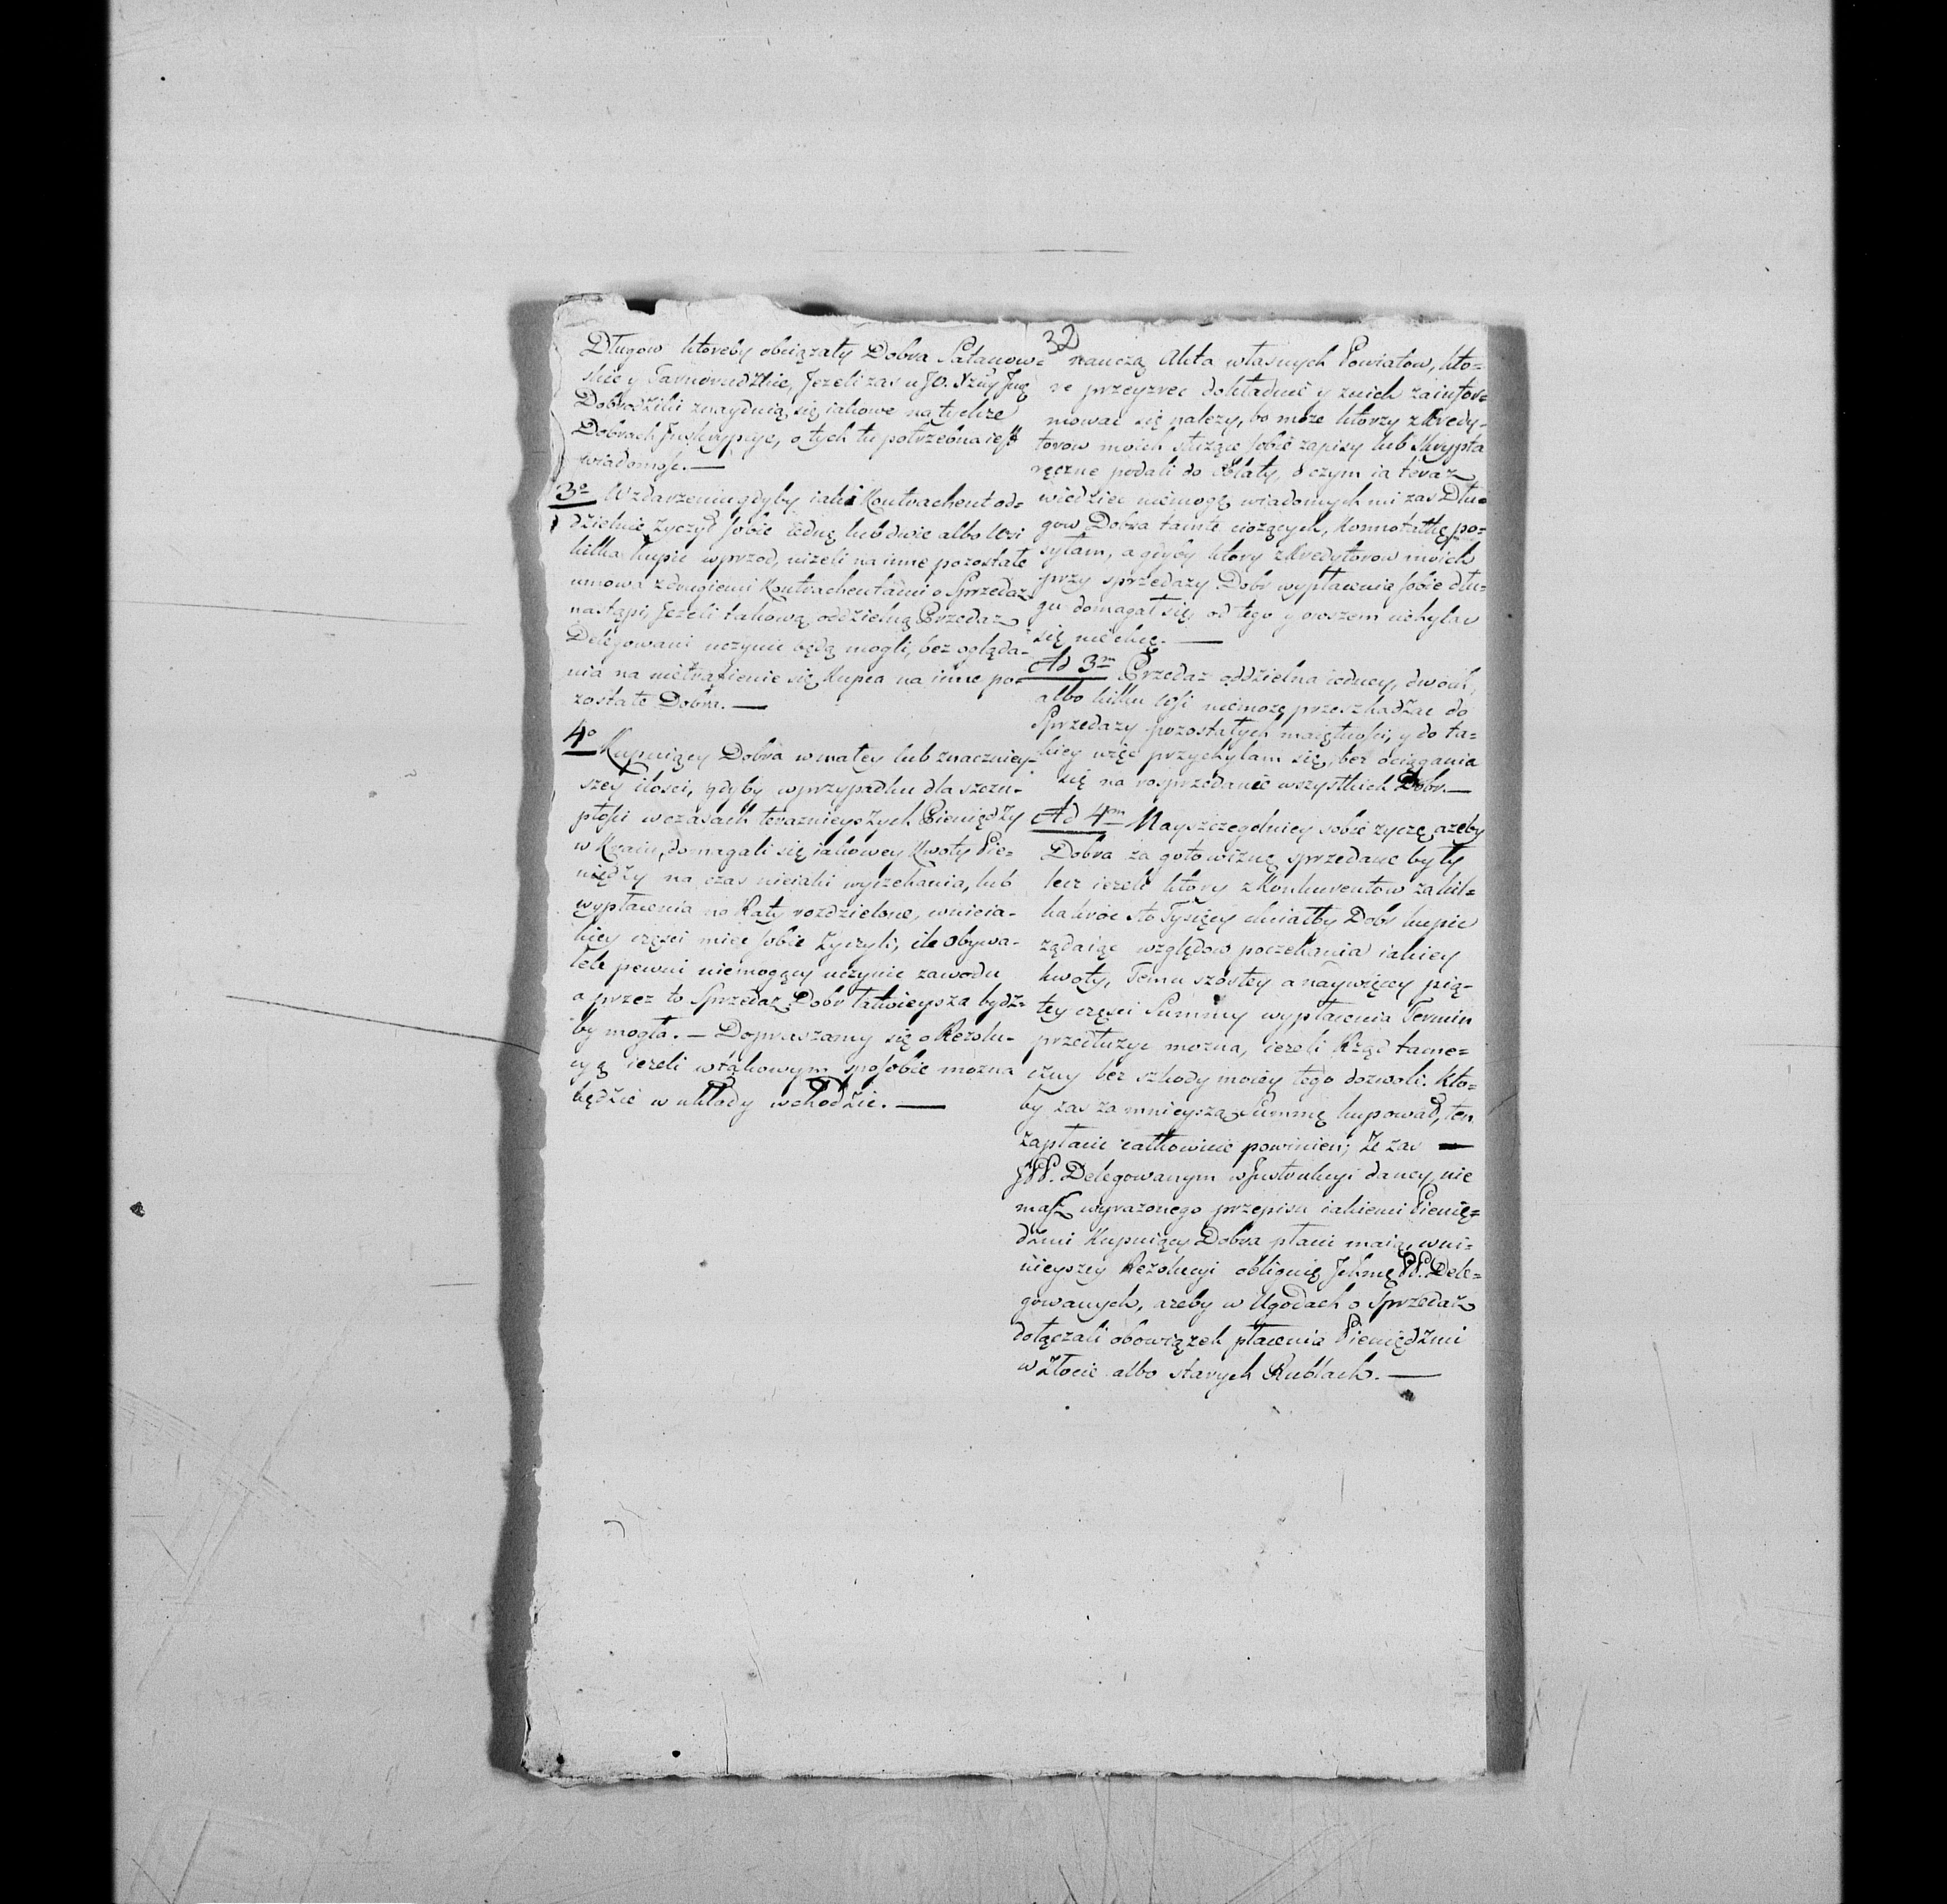 32
Długow ktoreby obciązały Dobra Satanow=
skie y Tarnorudzkie, Jezeli zas u JO. Xzny Jmę
Dobrodziki znayduią się iakowe na tychze
Dobrach Inskrypcye, o tych tu potrzebna iest
wiadomość. —
3o W zdarzeniu gdyby iaki Kontrachent od=
dzielnie życzył sobie iednę lub dwie albo Wsi
kilka kupic wprzod, nizeli na inne pozostałe
umowa z drugiemi Kontrachentami o Sprzedaz
nastąpi, Jezeli takową oddzielną Przedaz
Delegowani uczynic będą mogli, bez ogląda=
nia na nietrafienie się Kupca na inne po=
zostałe Dobra. —
4o Kupuiący Dobra w małey lub znaczniey=
szey ilości, gdyby w przypadku dla szczu=
płości w czasach teraznieyszych Pieniędzy
w Kraiu, domagali się iakowey Kwoty Pie=
niędzy na czas nieiaki wyczekania, lub
wypłacenia na Raty rozdzielone, w nieia=
kiey części miec sobie życzyli, ile Obywa=
tele pewni niemogący uczynic zawodu
a przez to Sprzedaz Dobr łatwieysza bydz=
by mogła. — Dopraszamy się o Rezolu=
cyą iezeli w takowym sposobie mozna
będzie w układy wchodzic. —
nauczą Akta własnych Powiatow, kto=
re przeyzrec dokładnie y znich zainfor=
mowac się nalezy, bo moze ktorzy z Kredy=
torow moich służące sobie zapisy lub Skrypta
ręczne podali do Oblaty, o czym ia teraz
wiedziec niemogę, wiadomych mi zas Dłu=
gow Dobra tamte ciążących, Konnotatkę po=
syłam, a gdyby ktory z Kredytorow moich
przy sprzedazy Dobr wypłacenia sobie dłu=
gu domagał się, od tego y owszem uchylac
się nie chcę. —
Ad 3m Przedaz oddzielna iedney, dwoch,
albo kilku wsi niemoże przeszkadzac do
Sprzedazy pozostałych maiętności, y do ta=
kiey więc przychylam się, bez ociągania
się na rosprzedanie wszystkich Dobr. —
Ad 4m Nayszczegolniey sobie zyczę azeby
Dobra za gotowiznę sprzedane były
lecz iezeli ktory z Konkurentow za kil=
kakroc sto Tysięcy chciałby Dobr kupic
ządaiąc względow poczekania iakiey
kwoty, Temu szostey a naywięcey pią=
tey części Summy wypłacenia Termin
przedłużyc mozna, iezeli Rząd tame=
czny bez szkody moiey tego dozwoli. Kto=
by zas za mnieyszą Summę kupował, ten
zapłacic całkowicie powinien; Ze zas —
JWW. Delegowanym w Instrukcyi daney nie
masz wyrazonego przepisu iakiemi Pienię=
dzmi Kupuiący Dobra płacic maią, w ni=
nieyszey Rezolucyi obliguię Ichmę WW. Dele=
gowanych, azeby w Ugodach o Sprzedaz
dołączali obowiązek płacenia Pieniędzmi
w Złocie albo starych Rublach. —